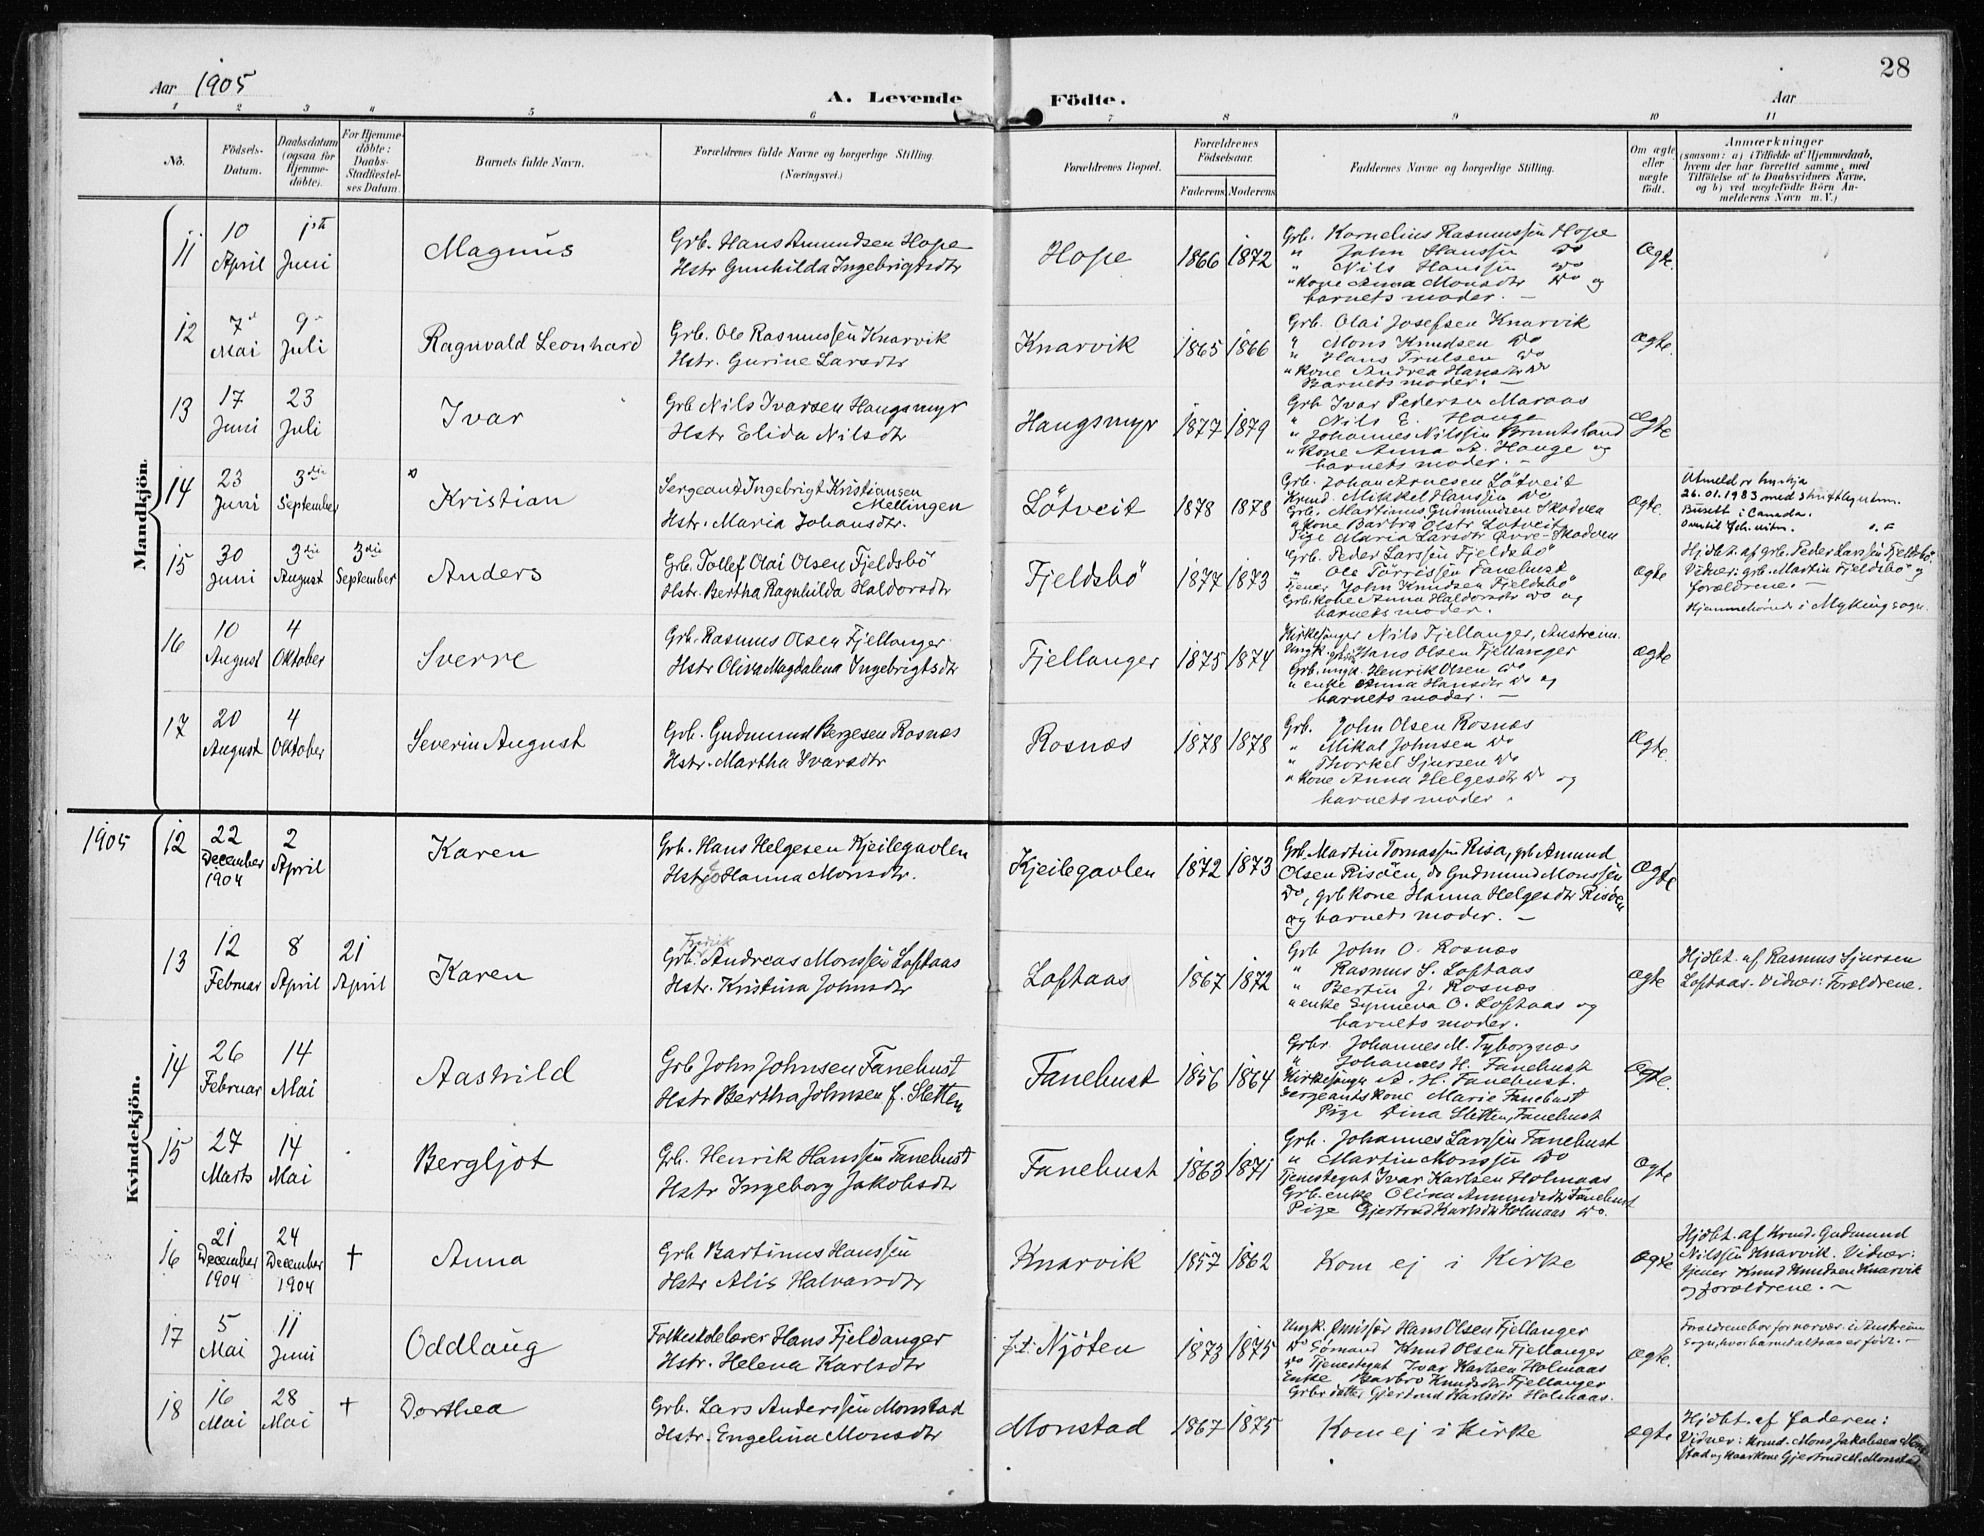 28
Aar 1905
A. Levende Födte.
Aar
1 2 3 " 5 6 7 8 9 10 11
No.
Födsels-
Datum.
Daabsdatum
(ogsaa for
Hjemme-
döbte).
For Hjemme-
döbte:
Daabs-
Stadfæstel-
ses Datum.
Barnets fulde Navn.
Forældrenes fulde Navne og borgerlige Stilling.
(Næringsvei.)
Forældrenes Bopæl.
Forældrenes
Födselsaar.
Faderens Moderens
Faddernes Navne og borgerlige Stilling.
Om ægte
eller
uægte
födt.
Anmærkninger
(saasom: a) i Tilfælde af Hjemmedaab,
hvem der har forrettet samme, med
Tilföielse af to Daabsvidners Navne,
og b) ved uægtefödte Börn An-
melderens Navn m. V.)
Mandkjön.
11
10
April
1ste
Juni
Magnus
Grb. Hans Amundsen Hope
Hstr Gunhilda Ingebrigtsdtr
Hope
1866 1872
Grb. Kornelius Rasmussen Hope
" John Hanssen do
" Nils Hanssen do
" Kone Anna Monsdtr do og
barnets moder. –
Ægte.
12
7
Mai
9
Juli
Ragnvald Leonhard
Grb. Ole Rasmussen Knarvik
Hstr. Gurine Larsdtr
Knarvik
1865 1866
Grb. Olai Josefsen Knarvik
" Mons Knudsen do
" Hans Trulsen do
" Kone Andrea Hansdtr do
Barnets moder. –
Ægte.
13
17
Juni
23
Juli
Ivar
Grb Nils Ivarsen Haugsmyr
Hstr Elida Nilsdtr
Haugsmyr
1877 1879
Grb Ivar Pedersen Maraas
" Nils E. Hauge
" Johannes Nilssen Bruntsland
" Kone Anna A. Hauge og
barnets moder. –
Ægte
14
23
Juni
3die
September
Kristian
Sergeant Ingebrigt Kristiansen
Mellingen
Hstr. Maria Johansdtr.
Lötveit
1878 1878
Grb. Johan Arnesen Lötveit
Krmd. Mikkel Hanssen do
Grb. Martinus Gudmundsen Skodvea
" Kone Bartra Olstr Lotveit
Pige Maria Larsdtr Övre-Skodven
Ægte.
Utmeld
26.01.1983 med
Busett i Canada.
15
30
Juni
3die
August
3die
September
Anders
Grb. Tollef Olai Olsen Fjeldsbö
Hstr. Bertha Ragnhilda Haldorsdtr
Fjeldsbö
1877 1873
Grb. Peder Larssen Fjeldsbö
" Ole Törrissen Fanebust
Tjener John Knudsen Fjeldsbö
Grb. Kone Anna Haldorsdtr do og
barnets moder.
Ægte
Hjdbt. af grb. Peder Larssen Fjeldsbö.
Vidner: grb. Martin Fjeldsbö og
forældrene. –
Hjemmehörende i Myking sogn.
16
10
August
4
Oktober
Sverre
Grb. Rasmus Olsen Fjellanger
Hstr Oliva Magdalena Ingebrigtsdtr
Fjellanger
1875 1874
Kirkesanger Nils Fjellanger, Austreim.
Ungk. Hans Olsen Fjellanger
Grb. ungk. Henrik Olsen do
" enke Anna Hansdtr do og
barnets moder. –
Ægte
17
20
August
4
Oktober
Severin August
Grb. Gudmund Bergesen Rosnæs
Hstr. Martha Ivarsdtr
Rosnæs
1878 1878
Grb. John Olsen Rosnæs
" Mikal Johnsen do
" Thorkel Sjursen do
" Kone Anna Helgesdtr do og
barnets moder.
Ægte.
Kvindekjön.
1905
12
22
December
1904
2
April
Karen
Grb. Hans Helgesen Kjeilegavlen
Hstr Johanna Monsdtr.
Kjeilegavlen
1872 1873
Grb. Martin Tomassen Risa, grb Amund
Olsen Risöen, do Gudmund Monssen
do, grb kone Hanna Helgesdtr Risöen
og barnets moder. –
Ægte
13
12
Februar
8
April
21
April
Karen
Fredrik
Grb. Andreas Monssen Loftaas
Hstr. Kristina Johnsdtr
Loftaas
1867 1872
Grb John O. Rosnæs
" Rasmus S. Loftaas
" Bertin J. Rosnæs
" enke Synneva O. Loftaas og
barnets moder.
Ægte
Hjdbt. af Rasmus Sjursen
Loftaas. Vidner: Forældrene.
14
26
Februar
14
Mai
Aashild
Grb John Johnsen Fanebust
Hstr Bertha Johnsen f. Sletten
Fanebust
1856 1864
Grbr. Johannes M. Tyborgnæs
" Johannes H. Fanebust
Kirkesanger A. H. Fanebust.
Sergeantskone Marie Fanebust
Pige Dina Sletten, Fanebust
Ægte.
15
27
Marts
14
Mai
Bergljot
Grb. Henrik Hanssen Fanebust
Hstr Ingeborg Jakobsdtr
Fanebust
1863 1871
Grb. Johannes Larssen Fanebust
" Martin Monssen do
Tjenestegut Ivar Karlsen Holmaas
Grb. enke Olina Amundsdtr Fanebust
Pige Gjertrud Karlsdtr Holmaas do.
Ægte
16
21
December
1904
24
December
1904
†
Anna
Grb Bartinus Hanssen
Hstr Alis Halvarsdtr
Knarvik
1857 1862
Kom ej i Kirke
Ægte
Hjdbt. af Krmd. Gudmund
Nilssen Knarvik. Vidner:
tjener Knud Knudsen Knarvik
og forældrene. –
17
5
Mai
11
Juni
Oddlaug
Folkeskolelærer Hans Fjeldanger
Hstr. Helena Karlsdtr
p.t. Njöten
1873 1875
Ungk. Hans Olsen Fjellanger
do Sömand Knud Olsen Fjellanger
do Tjenestegut Ivar Karlsen Holmaas
Enke Barbro Knudsdtr Fjellanger
Grbr. datter Gjertrud Karlsdtr Holmaas.
Ægte.
Forældrene bor for nærvær. i Austreim
Sogn, hvor barnet altsaa er födt. –
18
16
Mai
28
Mai
†
Dorthea
Grb. Lars Anderssen Monstad
Hstr. Engelina Monsdtr
Monstad
1867 1875
Kom ej i Kirke
Ægte
Hjdbt. af Faderen:
Vidner: Krmd. Mons Jakobsen Mon
stad og Kaarkone Gjertrud M. Monstad